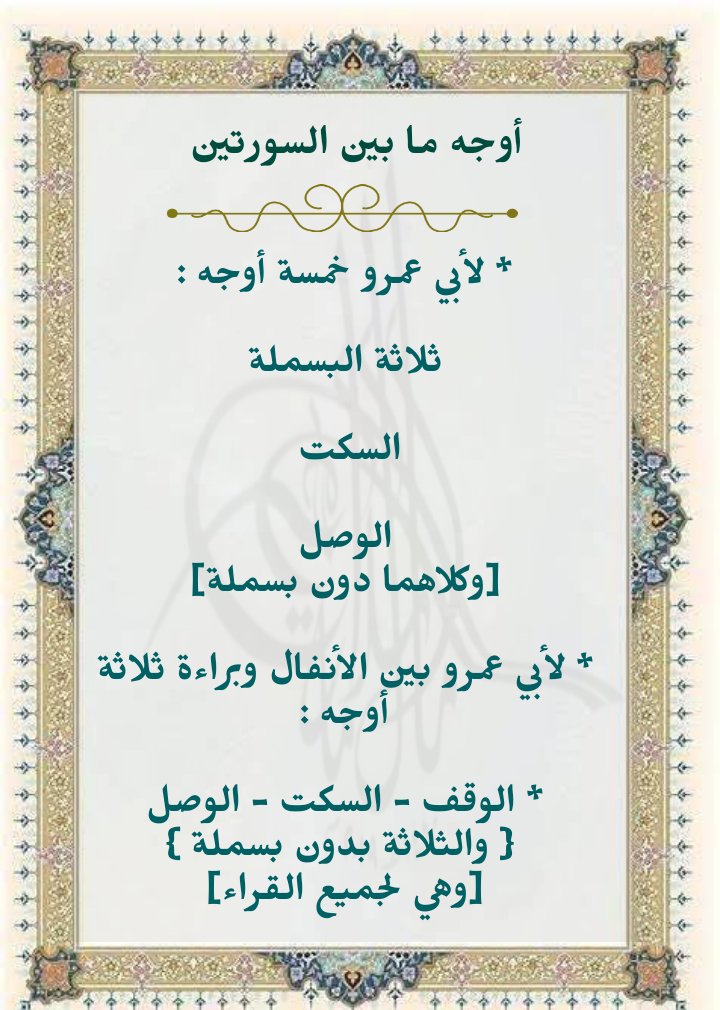 أوجه ما بين السورتين
* لأبي عمرو خمسة أوجه :
ثلاثة البسملة
السكت
الوصل
[وكلاهما دون بسملة]
* لأبي عمرو بين الأنفال وبراءة ثلاثة
أوجه :
* الوقف - السكت - الوصل
{ والثلاثة بدون بسملة }
[وهي لجميع القراء]